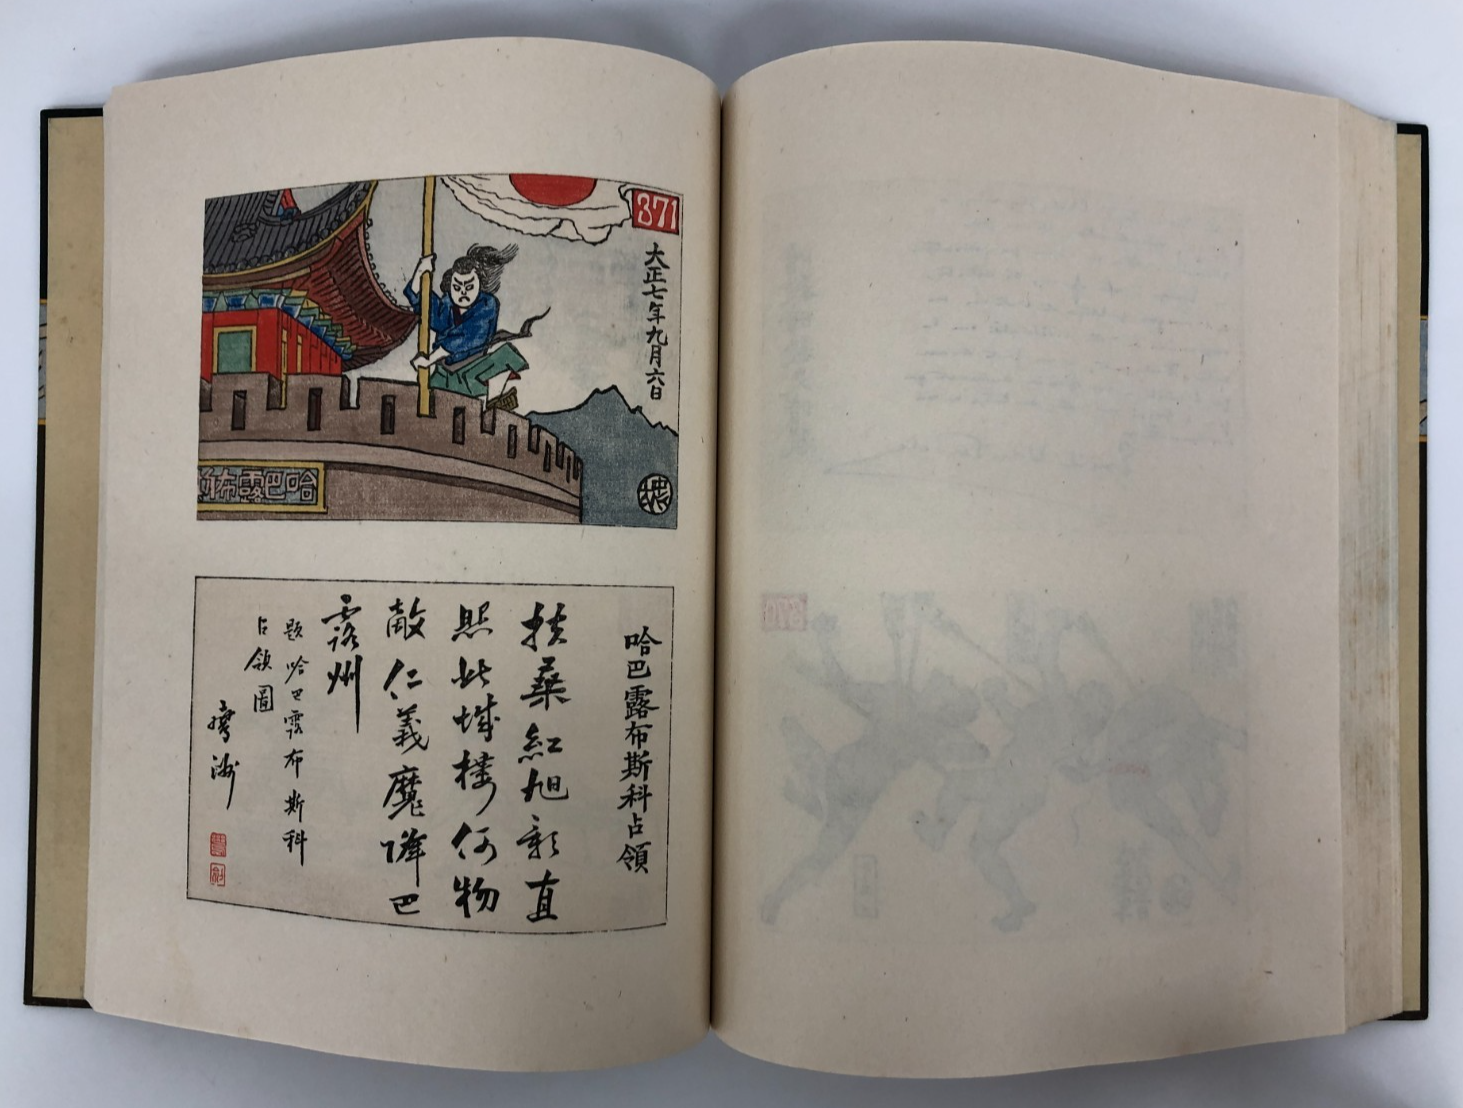 371
大正七年九月六日
哈巴露布斯
哈巴露布斯科占領
扶桑紅旭彩直
照此城楼何物
敵仁義魔降巴
露州
題哈巴露布斯科
占領圖
370